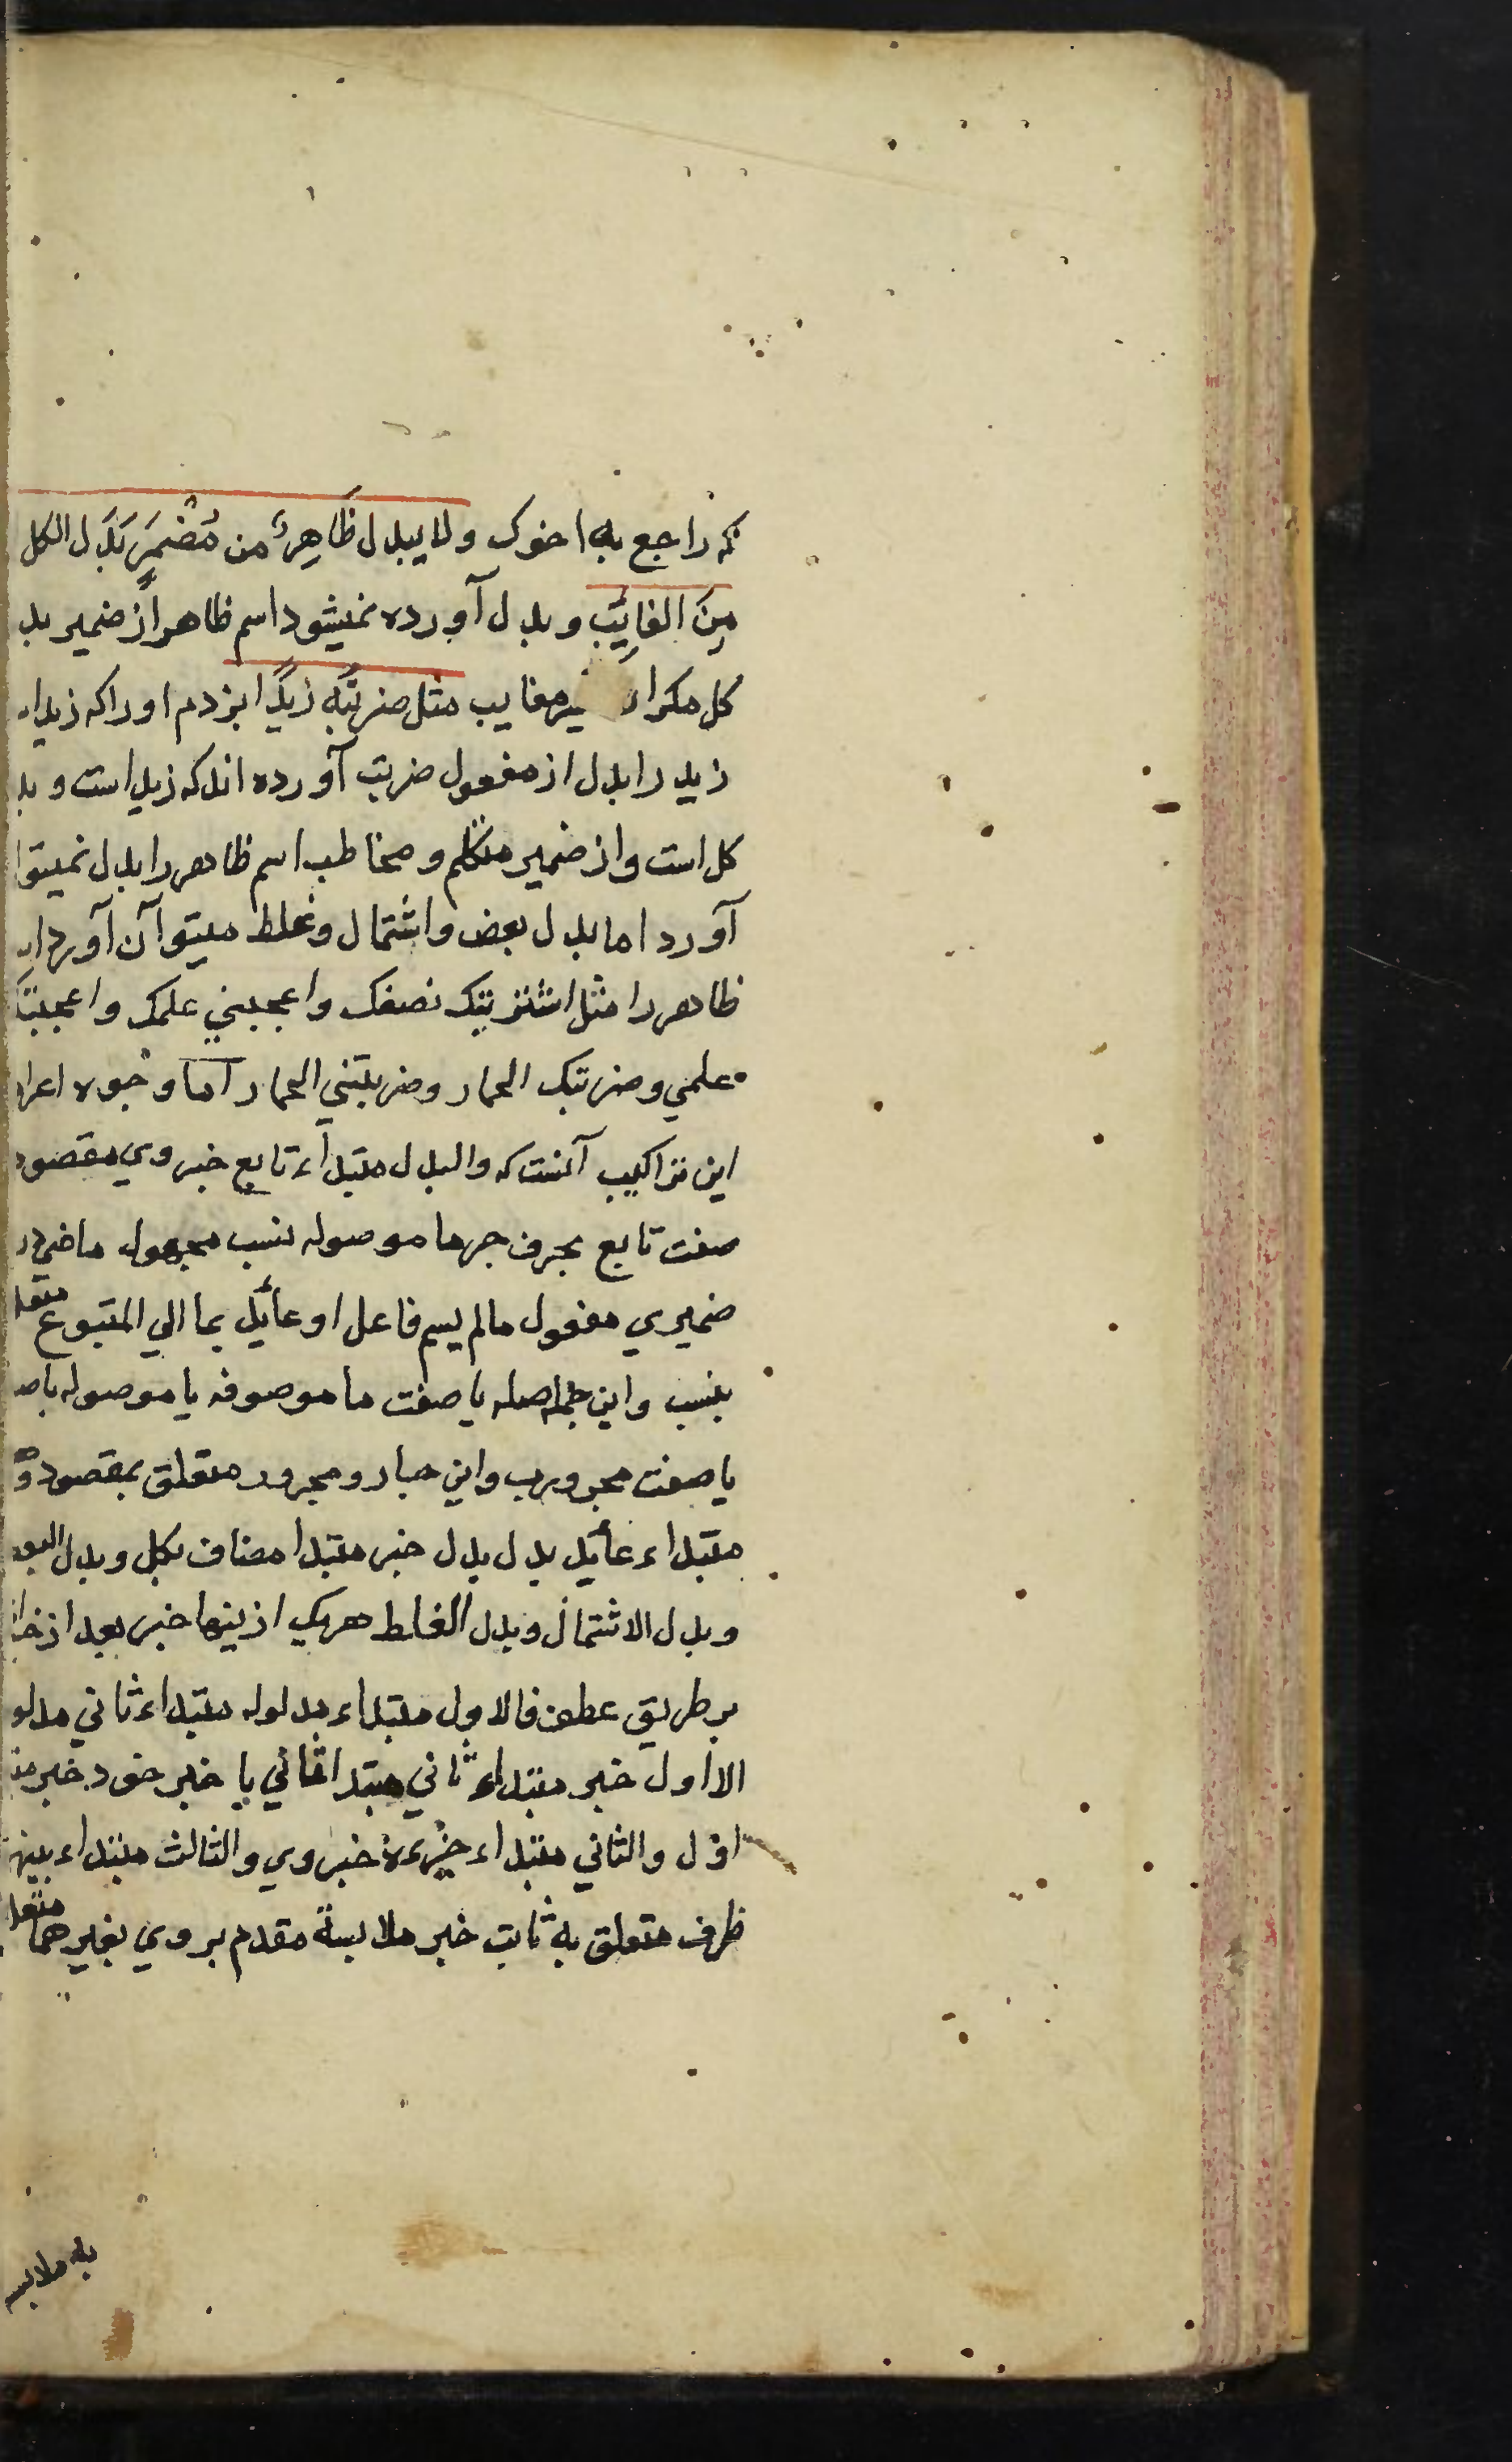 که راجع به اخوک ولا یبدل ظَاهِرٌ من مُضْمَرٍ بَدَلَ الکل
مِنَ الغایِٔبِ وبدل آورده نمیشود اسم ظاهر از ضمیر بد
کل مکر از یر مغایب مثل ضربتُه زیدًا بزدم اورا که زید
زید را بدل از مفعول ضربت آورده اند که زید است و بد
کل است واز ضمیر متکلم و مخاطب اسم ظاهر را بدل نمیتوا
آورد اما بدل بعض واشتمال وغلط میتوآن آورد
ظاهر را مثل اشتریتک نصفک واعجبني علمک واعجبتک
علمي وضربتک الحمار وضربتني الحمار اما وجوه اعرا
این تراکیب آنست که والبدل مبتداء تابع خبر وي مقصود
صفت تابع بحرف جر ما موصوله نسب مجهول ماضي
ضمیري مفعول مالم یسم فاعل او عائد بما الي المتبوع متعلـ
بنسب واین جمله صله یا صفت ما موصوفه یا موصوله باصـ
یا صفت مجرور ب واین جار ومجرور متعلق بمقصود و
مبتداء عائد بدل بدل خبر مبتدا مضاف بکل وبدل البعـ
وبدل الاشتمال وبدل الغلط هریک ازینها خبر بعد از خبر
بر طریق عطف فالاول مبتداء مدلوله مبتداء ثاني مدلو
الااول خبر مبتداء ثاني مبتدا ثاني با خبر خود خبر مبـ
اول والثاني مبتداء جزءه خبر وي والثالث مبتداء بینـ
ظرف متعلق به ثابت خبر ملابسة مقدم بر وي بغیرهما متعلـ
به ملابسه